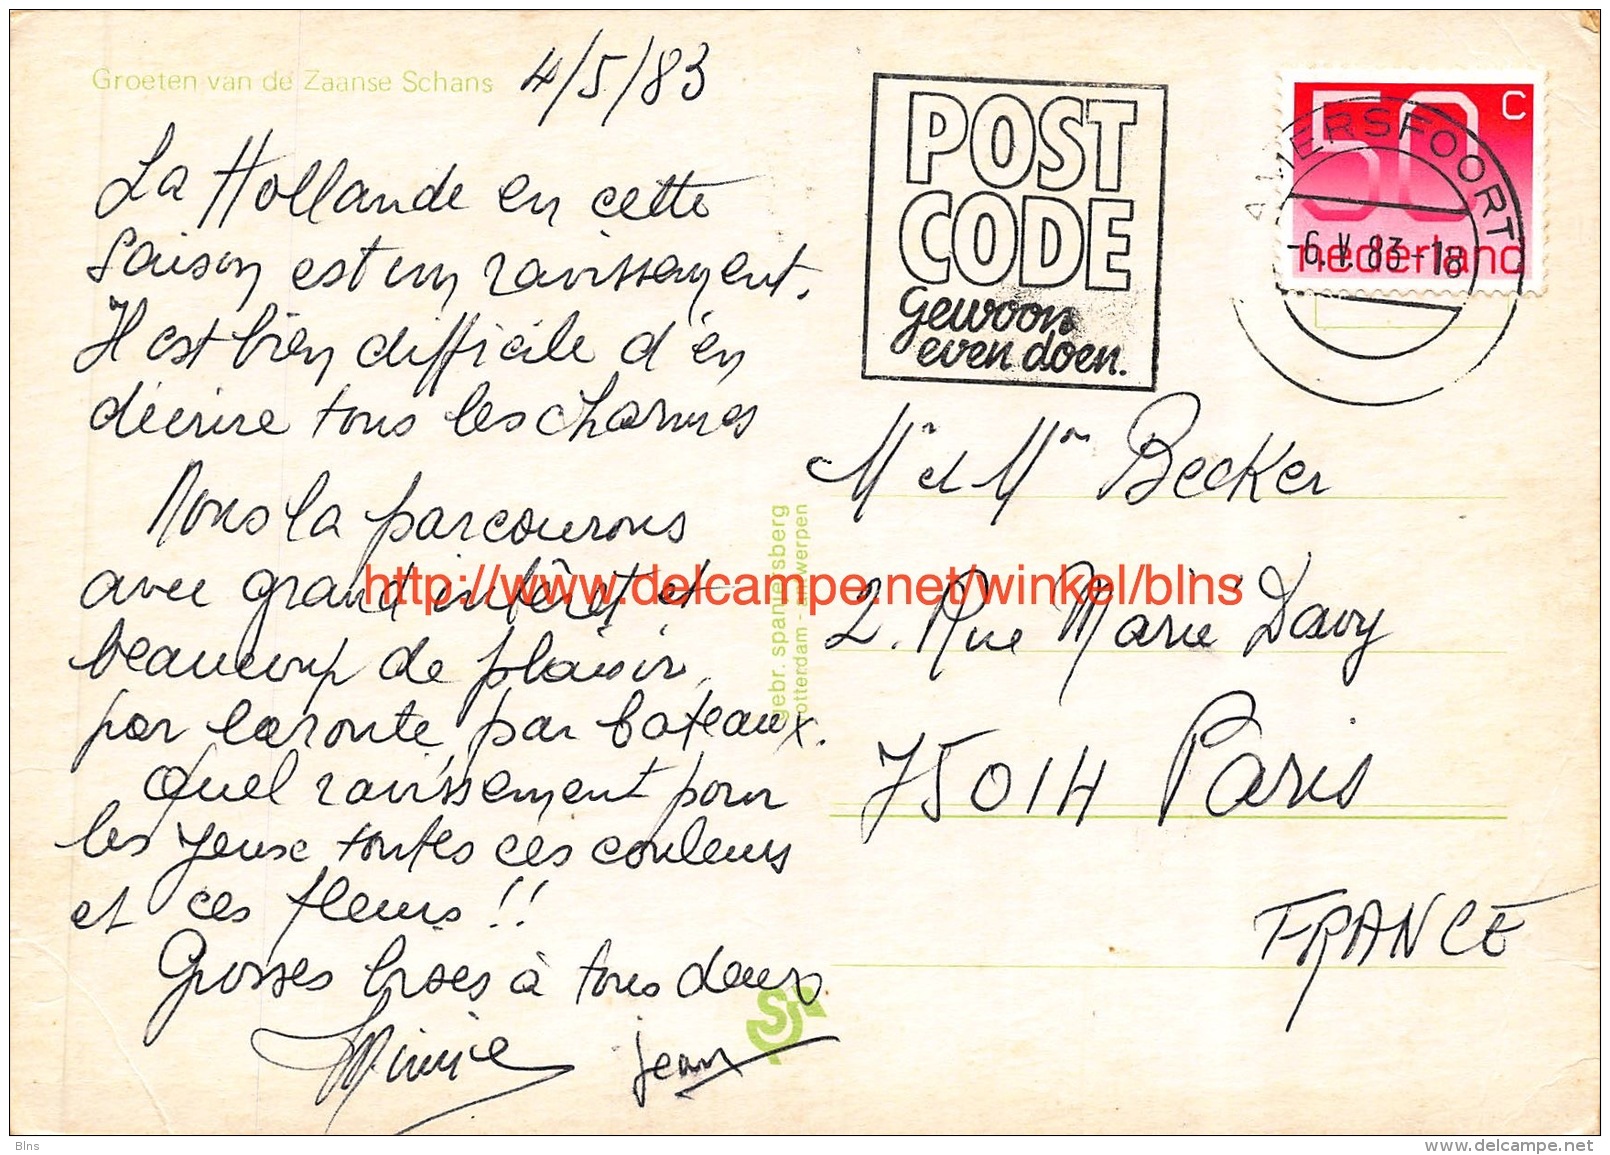 Groeten van de Zaanse Schans
4/5/83
La Hollande en cette
saison est un ravissement.
Il est bien difficile d'en
décrire tous les charmes
Nous la parcourons
avec grand intérêt et
beaucoup de plaisir,
par la route, par bateaux.
Quel ravissement pour
les yeux toutes ces couleurs
et ces fleurs !!
Grosses bises à tous deux
Mimie Jean
gebr. spanjersberg
rotterdam - antwerpen
POST
CODE
gewoon
even doen.
50 C
nederland
AMERSFOORT
-6.V.83-18
Mr et Mme Becker
2. Rue Marie Davy
75014 Paris
FRANCE
http://www.delcampe.net/winkel/blns
Blns
www.delcampe.net